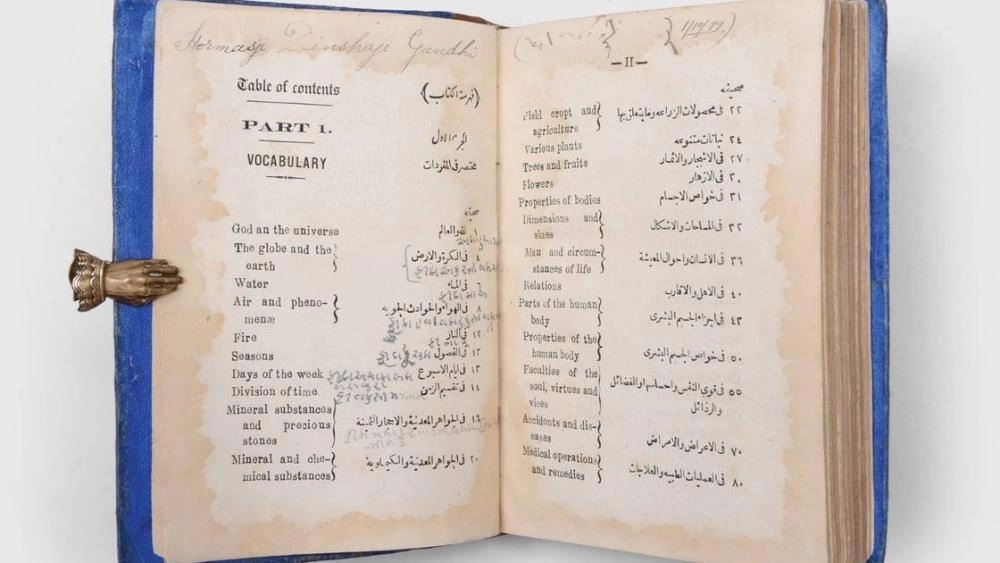 Hormasji Dinshaje Gandhi
Table of contents (فهرسة الكتاب)
PART 1. الجزء الاول
VOCABULARY مختصر فى المفردات
صحيفه
God an the universe ١ الله والعالم
The globe and the
earth ٤ فى الكرة والارض
Water ٦ فى الماء
Air and pheno-
menæ ٨ فى الهواء والحوادث الجويه
Fire ١٢ فى النار
Seasons ١٢ فى الفصول
Days of the week ١٣ فى ايام الاسبوع
Division of time ١٤ فى تقسيم الزمن
Mineral substances
and precious
stones ١٦ فى الجواهر المعدنية والاحجار الثمينة
Mineral and che-
mical substances ٢٠ فى الجواهر المعدنية والكيماوية
—II—
صحيفه
Field cropt and
agriculture ٢٢ فى محصولات الزراعه وما يتعلق بها
Various plants ٢٤ نباتات متنوعه
Trees and fruits ٢٧ فى الاشجار والاثمار
Flowers ٣٠ فى الازهار
Properties of bodies ٣١ فى خواص الاجسام
Dimensions and
sizes ٣٢ فى المساحات والاشكال
Man and circum-
stances of life ٣٦ فى الانسان واحوال المعيشة
Relations ٤٠ فى الاهل والاقارب
Parts of the human
body ٤٣ فى اجزاء الجسم البشرى
Properties of the
human body ٥٠ فى خواص الجسم البشرى
Faculties of the
soul, virtues and
vices ٥٥ فى قوي النفس واحساسها والفضائل
والرذائل
Accidents and dis-
eases ٧٠ فى الاعراض والامراض
Medical operations
and remedies ٨٠ فى العمليات الطبيه والعلاجات